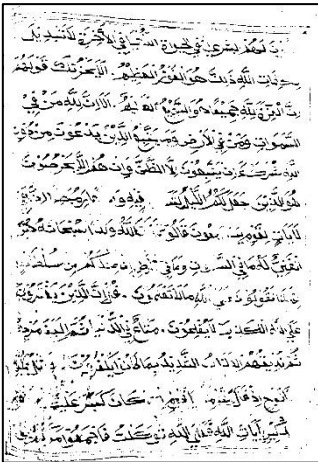 لهم البشرى في الحيوة الدنيا وفي الآخرة لا تبديل
لكلمات الله ذلك هو الفوز العظيم ولا يحزنك قولهم
ان العزة لله جميعا هو السميع العليم الا ان لله من في
السموات ومن في الارض وما يتبع الذين يدعون من دون
الله شركاء ان يتبعون الا الظن وان هم الا يخرصون
هو الذي جعل لكم الليل فيه
لايات لقوم يسمعون قالوا الله ولدا سبحانه هو
الغني له ما في السموات وما في الارض ان عندكم من سلطان
بهذا اتقولون على الله ما لا تعلمون قل ان الذين يفترون
على الله الكذب لا يفلحون متاع في الدنيا ثم الينا مرجعهم
ثم نذيقهم العذاب الشديد بما كانوا يكفرون
نوح اذ قال لقومه يا قوم كان كبر عليكم
بايات الله فعلى الله توكلت فاجمعوا